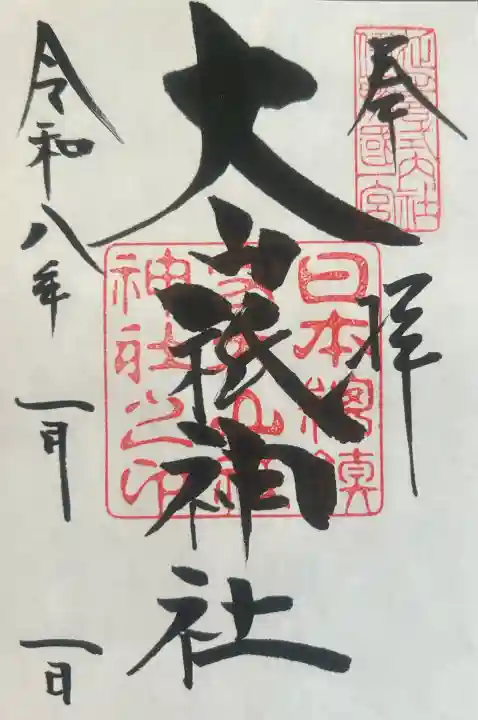 奉拝
日本總鎮
大山祇
神社之印
大山祇神社
令和八年一月一日